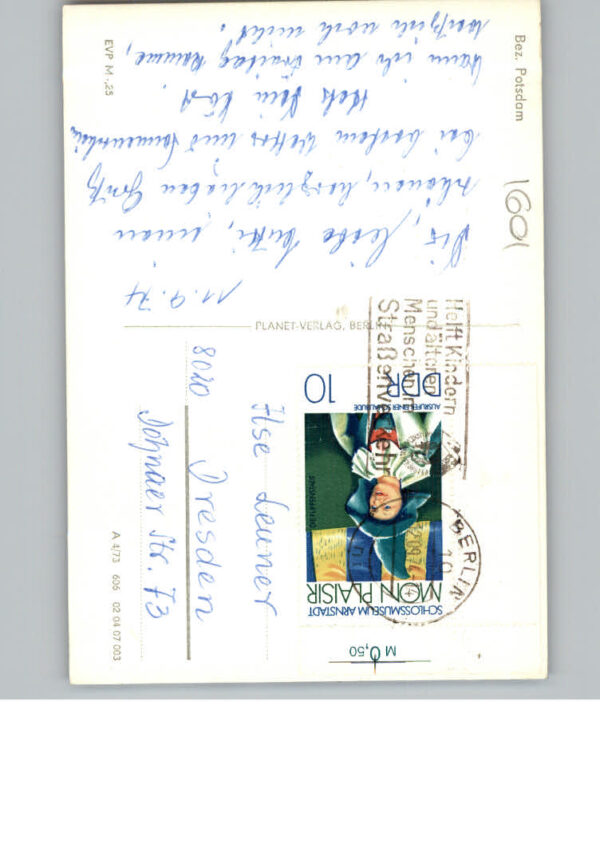 Bez. Potsdam
1601
11.9.74
Dir, liebe Mutti, einen
schönen, herzlichen lieben Gruß
bei bestem Wetter und Sonnenschein
stets Dein
Wann ich am Freitag komme,
weiß ich noch nicht.
EVP M -,25
PLANET-VERLAG, BERLIN
Helft Kindern
und älteren
Menschen im
Straßenverkehr
BERLIN
DDR 10
AUSRUFER EINER SCHAUBUDE
SCHLOSSMUSEUM ARNSTADT
MON PLAISIR
M 0,50
Ilse Leuner
8020 Dresden
Döhnaer Str. 73
A 4/73 606 02 04 07 003